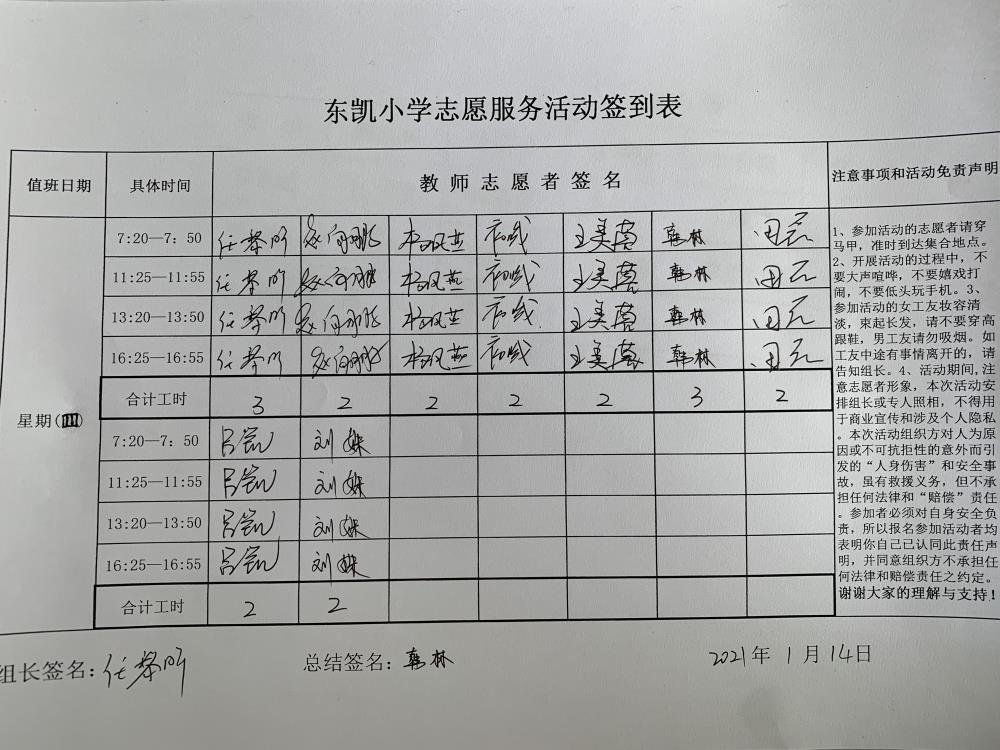 东凯小学志愿服务活动签到表
值班日期 具体时间 教师志愿者签名 注意事项和活动免责声明
7:20—7：50 杨凤燕 王美蓉 韩林 田元
11:25—11:55 杨凤燕 王美蓉 韩林 田元
13:20—13:50 杨凤燕 王美蓉 韩林 田元
16:25—16:55 杨凤燕 王美蓉 韩林 田元
合计工时 3 2 2 2 2 3 2
星期(四)
7:20—7：50 吕凯 刘妹
11:25—11:55 吕凯 刘妹
13:20—13:50 吕凯 刘妹
16:25—16:55 吕凯 刘妹
合计工时 2 2
1、参加活动的志愿者请穿
马甲，准时到达集合地点。
2、开展活动的过程中，不
要大声喧哗，不要嬉戏打
闹，不要低头玩手机。3、
参加活动的女工友妆容清
淡，束起长发，请不要穿高
跟鞋，男工友请勿吸烟。如
工友中途有事情离开的，请
告知组长。4、活动期间,注
意志愿者形象，本次活动安
排组长或专人照相，不得用
于商业宣传和涉及个人隐私
。本次活动组织方对人为原
因或不可抗拒性的意外而引
发的“人身伤害”和安全事
故，虽有救援义务，但不承
担任何法律和“赔偿”责任
。参加者必须对自身安全负
责，所以报名参加活动者均
表明你自己已认同此责任声
明，并同意组织方不承担任
何法律和赔偿责任之约定。
谢谢大家的理解与支持！
组长签名： 总结签名：韩林 2021年1月14日